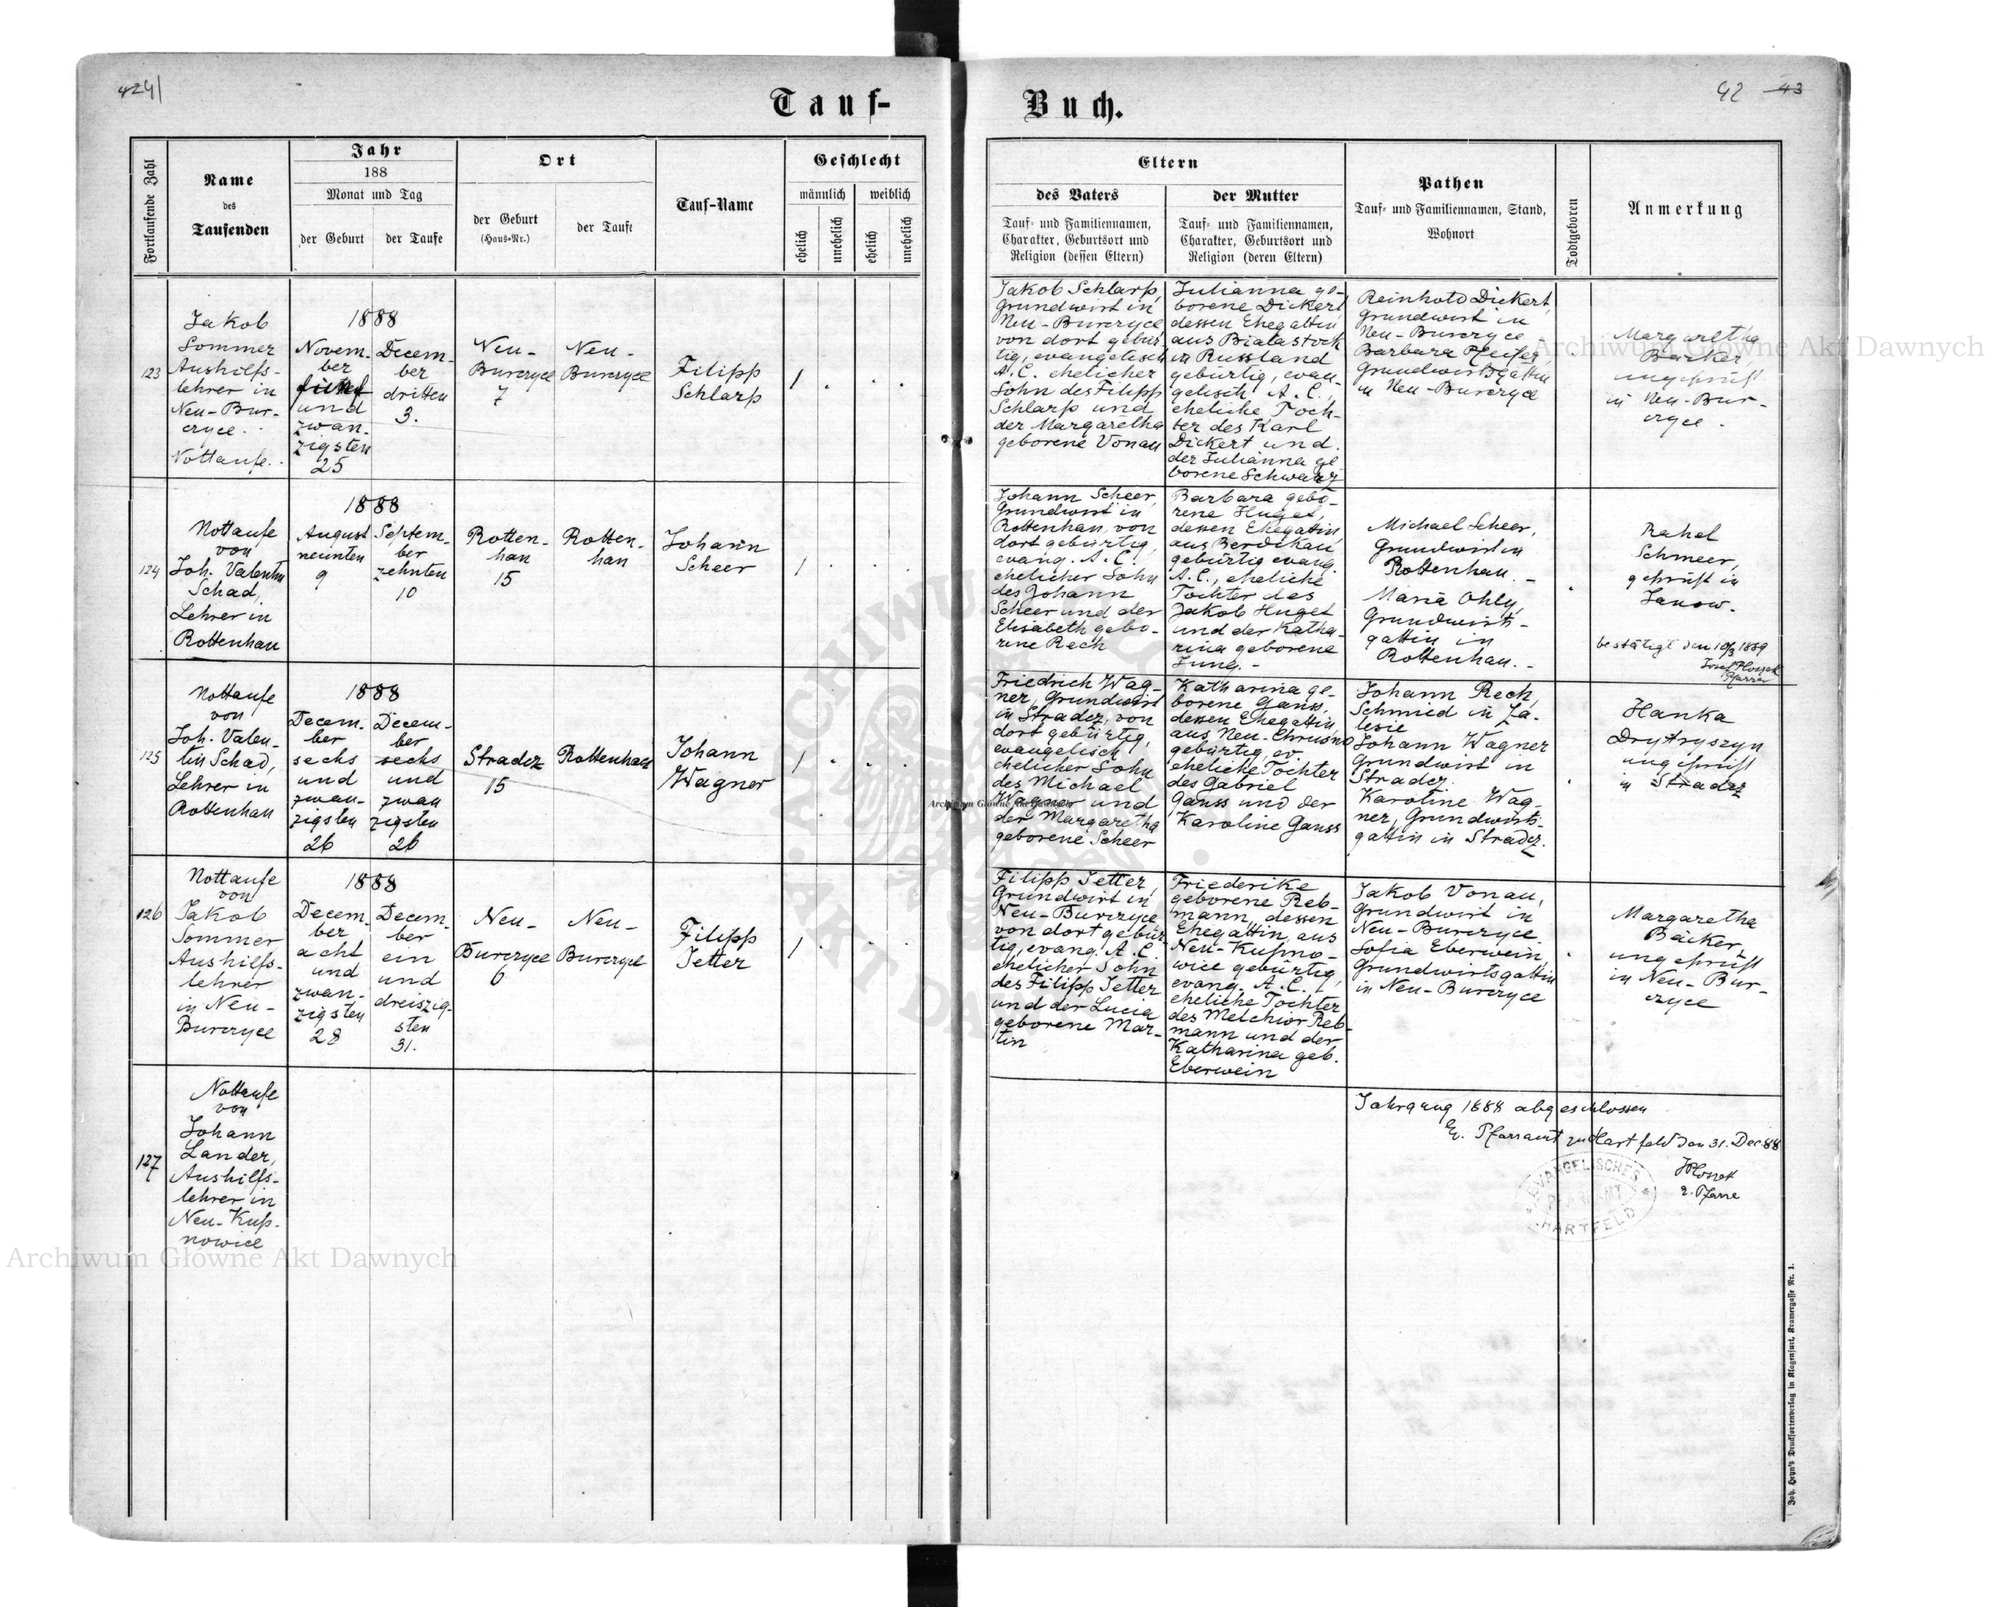 424|
42 43
Tauf-
Buch.
Fortlaufende Zahl
Name
des
Taufenden
Jahr
188
Monat und Tag
der Geburt
der Taufe
Ort
der Geburt
(Haus-Nr.)
der Taufe
Tauf-Name
Geschlecht
männlich
weiblich
ehelich
unehelich
ehelich
unehelich
Eltern
des Vaters
Tauf- und Familiennamen,
Charakter, Geburtsort und
Religion (dessen Eltern)
der Mutter
Tauf- und Familiennamen,
Charakter, Geburtsort und
Religion (deren Eltern)
Pathen
Tauf- und Familiennamen, Stand,
Wohnort
Todtgeboren
Anmerkung
123
Jakob
Sommer
Aushilfs-
lehrer in
Neu-Bur-
czyce.
Nottaufe.
1888
Novem-
ber
fünf
und
zwan-
zigsten
25
Decem-
ber
dritten
3.
Neu-
Burczyce
7
Neu-
Burczyce
Filipp
Schlarp
1
Jakob Schlarp,
Grundwirt in
Neu-Burczyce,
von dort gebür-
tig, evangelisch
A.C. ehelicher
Sohn des Filipp
Schlarp und
der Margaretha
geborene Vonau
Julianna ge-
borene Dickert
dessen Ehegattin
aus Bialastock
in Russland
gebürtig, evan-
gelisch A.C.,
eheliche Toch-
ter des Karl
Dickert und
der Julianna ge-
borene Schwarz
Reinhold Dickert,
Grundwirt in
Neu-Burczyce
Barbara Pfeifer,
Grundwirtsgattin
in Neu-Burczyce
Margaretha
Bäcker
ungeprüft
in Neu-Bur-
czyce.
124
Nottaufe
von
Joh. Valentin
Schad,
Lehrer in
Rottenhan
1888
August
neunten
9
Septem-
ber
zehnten
10
Rotten-
han
15
Rotten-
han
Johann
Scheer
1
Johann Scheer,
Grundwirt in
Rottenhan, von
dort gebürtig,
evang. A.C.
ehelicher Sohn
des Johann
Scheer und der
Elisabeth gebo-
rene Rech
Barbara gebo-
rene Huget,
dessen Ehegattin,
aus Berdikau
gebürtig evang.
A.C., eheliche
Tochter des
Jakob Huget
und der Katha-
rina geborene
Jung. -
Michael Scheer,
Grundwirt in
Rottenhan. -
Maria Ohly,
Grundwirts-
gattin in
Rottenhan. -
Rahel
Schmeer,
geprüft in
Janow.
bestätigt den 10/3 1889
Pfarrer
125
Nottaufe
von
Joh. Valen-
tin Schad,
Lehrer in
Rottenhan
1888
Decem-
ber
sechs
und
zwan-
zigsten
26
Decem-
ber
sechs
und
zwan
zigsten
26
Stradcz
15
Rottenhan
Johann
Wagner
1
Friedrich Wag-
ner, Grundwirt
in Stradcz, von
dort gebürtig,
evangelisch
ehelicher Sohn
des Michael
Wagner und
der Margaretha
geborene Scheer
Katharina ge-
borene Gauss,
dessen Ehegattin
aus Neu-Chrusno
gebürtig, ev.
eheliche Tochter
des Gabriel
Gauss und der
Karoline Gauss
Johann Rech,
Schmied in Za-
lesie
Johann Wagner
Grundwirt in
Stradcz.
Karoline Wag-
ner, Grundwirts-
gattin in Stradcz.
Hanka
Drytryszyn
ungeprüft
in Stradcz
126
Nottaufe
von
Jakob
Sommer
Aushilfs-
lehrer
in Neu-
Burczyce
1888
Decem-
ber
acht
und
zwan-
zigsten
28
Decem-
ber
ein
und
dreiszig-
sten
31.
Neu-
Burczyce
6
Neu-
Burczyce
Filipp
Jetter
1
Filipp Jetter,
Grundwirt in
Neu-Burczyce
von dort gebür-
tig, evang. A.C.
ehelicher Sohn
des Filipp Jetter
und der Lucia
geborene Mar-
tin
Friederike
geborene Reb-
mann, dessen
Ehegattin, aus
Neu-Kupno-
wice gebürtig,
evang. A.C.,
eheliche Tochter
des Melchior Reb-
mann und der
Katharina geb.
Eberwein
Jakob Vonau,
Grundwirt in
Neu-Burczyce
Sofia Eberwein,
Grundwirtsgattin
in Neu-Burczyce
Margaretha
Bäcker,
ungeprüft
in Neu-Bur-
czyce
127
Nottaufe
von
Johann
Lander,
Aushilfs-
lehrer in
Neu-Kup-
nowice
Jahrgang 1888 abgeschlossen
Ev. Pfarramt zu Hartfeld den 31. Dec 88
EVANGELISCHES
PFARRAMT
HARTFELD
Joh. Heyn's Drucksortenverlag in Klagenfurt, Kramergasse Nr. 1.
Archiwum Główne Akt Dawnych
Archiwum Główne Akt Dawnych
Archiwum Główne Akt Dawnych